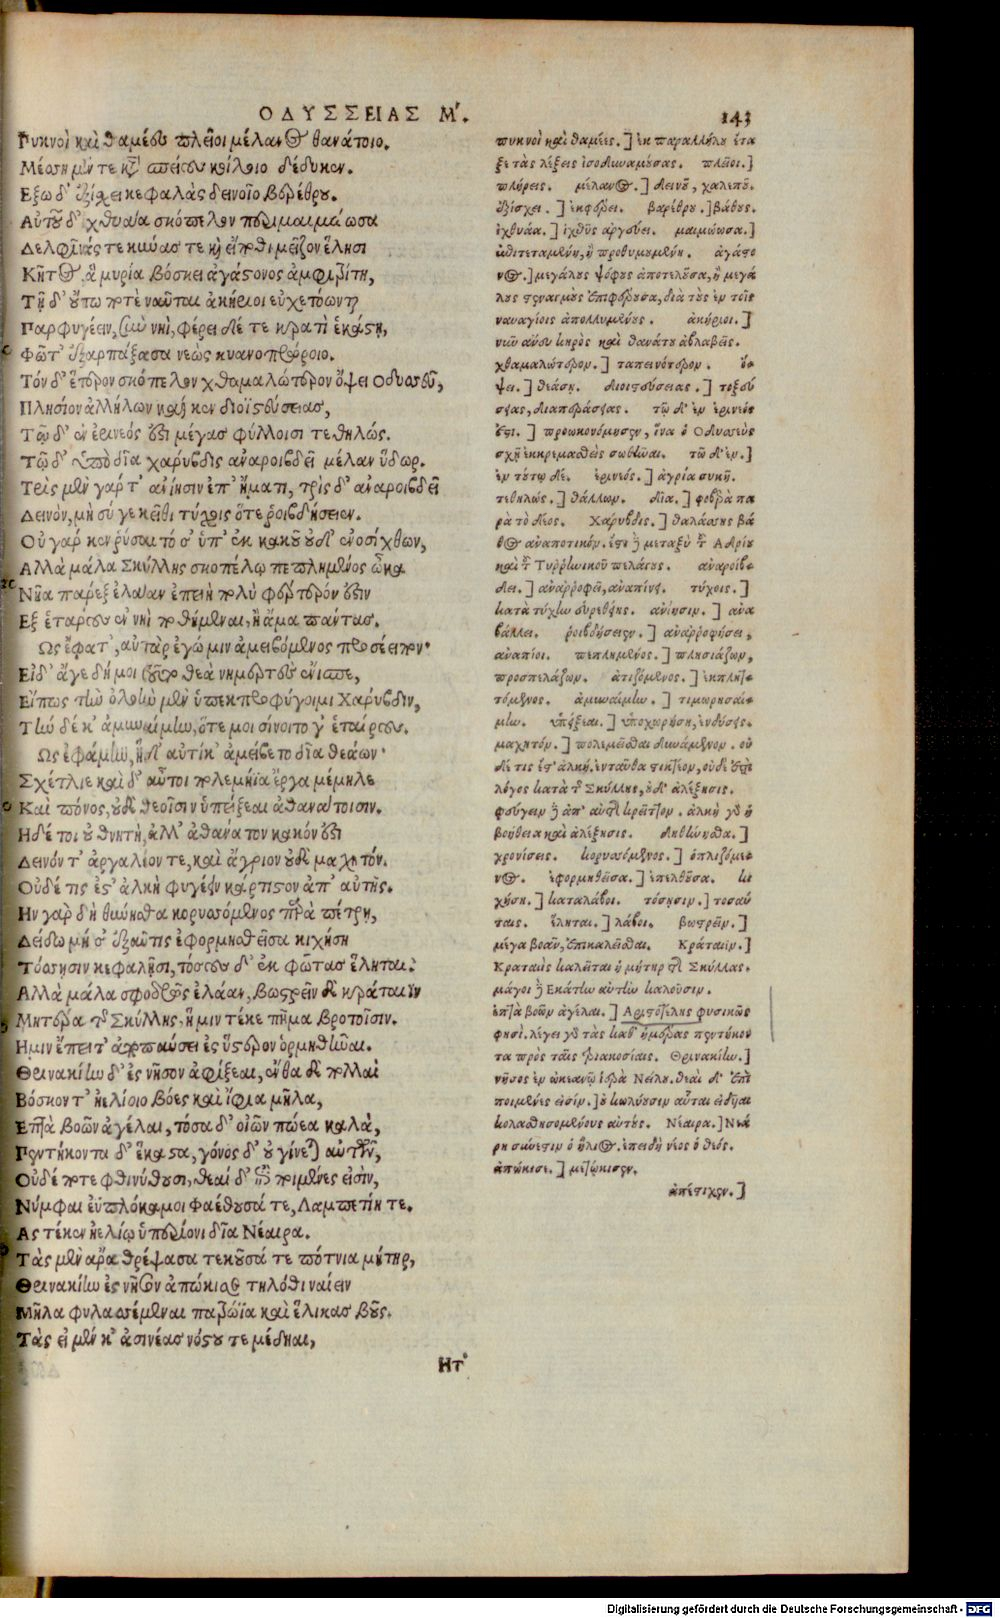 ΟΔΥΣΣΕΙΑΣ Μ. 143
Πυκνοὶ καὶ θαμέες πλεῖοι μέλανος θανάτοιο.
Μέσση μέν τε κτ͂ σπείους κοίλοιο δέδυκεν.
Εξω δ' ἐξίσχει κεφαλὰς δεινοῖο βερέθρου.
Αὐτοῦ δ' ἰχθυάα σκόπελον περιμαιμώωσα
Δελφῖνάς τε κύνας τε καὶ εἴ ποθι μεῖζον ἕλησι
Κῆτος, ἃ μυρία βόσκει ἀγάστονος ἀμφιτρίτη,
Τῇ δ' οὔπω ποτὲ ναῦται ἀκήριοι εὐχετόωνται
Παρφυγέειν, σὺν νηὶ, φέρει δέ τε κρατὶ ἑκάστῃ,
Φῶτ' ἐξαρπάξασα νεὼς κυανοπρώροιο.
Τόν δ' ἕτερον σκόπελον χθαμαλώτερον ὄψει Οδυσσεῦ,
Πλησίον ἀλλήλων καί κεν διοϊστεύσειας,
Τῷ δ' ἐν ἐρινεός ἐστι μέγας φύλλοισι τεθηλώς.
Τῷ δ' ὑπὸ δῖα χάρυβδις ἀναροιβδεῖ μέλαν ὕδωρ.
Τρὶς μὲν γάρ τ' ἀνίησιν ἐπ' ἤματι, τρὶς δ' ἀναροιβδεῖ
Δεινὸν, μὴ σύ γε κεῖθι τύχοις ὅτε ῥοιβδήσειεν.
Οὐ γάρ κεν ῥύσαιτό σ' ὑπ' ἐκ κακοῦ οὐδ' ἐνοσίχθων,
Αλλὰ μάλα Σκύλλης σκοπέλῳ πεπλημένος ὦκα
Νῆα παρὲξ ἐλάαν ἐπειὴ πολὺ φέρτερόν ἐστιν
Εξ ἑτάρους ἐν νηὶ ποθήμεναι, ἢ ἅμα πάντας.
Ως ἔφατ', αὐτὰρ ἐγώ μιν ἀμειβόμενος προσέειπον·
Εἰ δ' ἄγε δή μοι τοῦτο θεὰ νημερτὲς ἔνισπε,
Εἴπως τὴν ὀλοὴν μὲν ὑπεκπροφύγοιμι Χάρυβδιν,
Τὴν δέ κ' ἀμυναίμην, ὅτε μοι σίνοιτο γ' ἑταίρους.
Ως ἐφάμην, ἡ δ' αὐτίκ' ἀμείβετο δῖα θεάων·
Σχέτλιε καὶ δ' αὖτοι πολεμήϊα ἔργα μέμηλε
Καὶ πόνος, οὐδὲ θεοῖσιν ὑπείξεαι ἀθανάτοισιν.
Η δέ τοι οὐ θνητὴ, ἀλλ' ἀθάνατον κακόν ἐστι
Δεινόν τ' ἀργαλέον τε, καὶ ἄγριον οὐδὲ μαχητόν.
Οὐδέ τις ἐστ' ἀλκὴ φυγέειν κάρτιστον ἀπ' αὐτῆς.
Ην γὰρ δηθύνησθα κορυσσόμενος παρὰ πέτρῃ,
Δείδω μή σ' ἐξαῦτις ἐφορμηθεῖσα κιχήσῃ
Τόσσησιν κεφαλῇσι, τόσσους δ' ἐκ φῶτας ἕληται.
Αλλὰ μάλα σφοδρῶς ἐλάαν, βωστρεῖν δὲ κράταιιν
Μητέρα τῆς Σκύλλης, ἥ μιν τέκε πῆμα βροτοῖσιν.
Η μιν ἔπειτ' ἀποπαύσει ἐς ὕστερον ὁρμηθῆναι.
Θρινακίην δ' ἐς νῆσον ἀφίξεαι, ἔνθα δὲ πολλαὶ
Βόσκοντ' ἠελίοιο βόες καὶ ἴφια μῆλα,
Επτὰ βοῶν ἀγέλαι, τόσα δ' οἰῶν πώεα καλὰ,
Πεντήκοντα δ' ἕκαστα, γόνος δ' οὐ γίνεται αὐτῶν,
Οὐδέ ποτε φθινύθουσι, θεαί δ' ἐπιποιμένες εἰσὶν,
Νύμφαι εὐπλόκαμοι Φαέθουσά τε, Λαμπετίη τε.
Ας τέκεν ἠελίῳ ὑπερίονι δῖα Νέαιρα.
Τὰς μὲν ἄρα θρέψασα τεκοῦσά τε πότνια μήτηρ,
Θρινακίην ἐς νῆσον ἀπῴκισε τηλόθι ναίειν
Μῆλα φυλασσέμεναι πατρώϊα καὶ ἕλικας βοῦς.
Τὰς εἰ μέν κ' ἀσινέας νόστου τε μέδηαι,
Ητ'
πυκνοὶ καὶ θαμέες.] ἐκ παραλλήλου ἔτα
ξε τὰς λέξεις ἰσοδυναμούσας. πλεῖοι.]
πλήρεις. μέλανος.] δεινοῦ, χαλεποῦ.
ἐξίσχει.] ἐκφέρει. βαρέθρου.] βάθους.
ἰχθυάα.] ἰχθῦς ἀγρεύει. μαιμώωσα.]
ἐπιτεταμένη, ἢ προθυμουμένη. ἀγάστο
νος.] μεγάλους ψόφους ἀποτελοῦσα, ἢ μεγά
λους στεναγμοὺς ἐπιφέρουσα, διὰ τοὺς ἐν τοῖς
ναυαγίοις ἀπολλυμένους. ἀκήριοι.]
νῦν ἄνευ κηρὸς καὶ θανάτου ἀβλαβεῖς.
χθαμαλώτερον.] ταπεινότερον. ὄ-
ψει.] θεάσῃ. διοιστεύσειας.] τοξεύ
σειας, διαπεράσειας. τῷ δ' ἐν ἐρινεός
ἐστι.] προωκονόμησεν, ἵνα ὁ Οδυσσεὺς
σχῇ ἐκκρεμασθεὶς σωθῆναι. τῷ δ' ἐν.]
ἐν τούτῳ δέ. ἐρινεός.] ἀγρία συκῆ.
τεθηλώς.] θάλλων. δῖα.] φοβερὰ πα
ρὰ τὸ δέος. Χάρυβδις.] θαλάσσης βά
θος ἀναποτικόν. ἔστι δὲ μεταξὺ τοῦ Αδρίου
καὶ τοῦ Τυρρηνικοῦ πελάγους. ἀναροιβ-
δεῖ.] ἀναρροφεῖ, ἀναπίνει. τύχοις.]
κατὰ τύχην εὑρεθῇς. ἀνίησιν.] ἀνα
βάλλει. ῥοιβδήσειεν.] ἀναρροφήσει,
ἀναπίοι. πεπλημένος.] πλησιάζων,
προσπελάζων. ἀτιζόμενος.] ἐκπληττόμενος.
ἀμυναίμην.] τιμωρησαί-
μην. ὑπείξεαι.] ὑποχωρήσῃ, ἐνδώσεις.
μαχητόν.] πολεμεῖσθαι δυνάμενον. οὐ
δέ τις ἔστ' ἀλκή. ἐνταῦθα στικτέον, οὐδέ ἐστι
λόγος κατὰ τῆς Σκύλλης, οὐδ' ἀλέξησις.
φεύγειν δὲ ἀπ' αὐτῆς κρεῖττον. ἀλκὴ γὰρ ἡ
βοήθεια καὶ ἀλέξησις. δηθύνησθα.]
χρονίσεις. κορυσσόμενος.] ὁπλιζόμε-
νος. ἐφορμηθεῖσα.] ἐπελθοῦσα. κι
χήσῃ.] καταλάβοι. τόσσῃσιν.] τοσαύ
ταις. ἕληται.] λάβοι. βωστρεῖν.]
μέγα βοᾶν, ἐπικαλεῖσθαι. Κράταιιν.]
Κραταιὶς καλεῖται ἡ μήτηρ τῆς Σκύλλας.
μάγοι δὲ Εκάτην αὐτὴν καλοῦσιν.
ἑπτὰ βοῶν ἀγέλαι.] Αριστοτέλης φυσικῶς
φησὶ. λέγει γὰρ τὰς καθ' ἡμέρας πεντήκον
τα πρὸς ταῖς τριακοσίαις. Θρινακίην.]
νῆσος ἐν ὠκεανῷ ἱερὰ Νείλου. θεαὶ δ' ἐπὶ
ποιμένες εἰσίν.] οὐ κωλύουσιν αὗται εἰδῆσαι
κολασθησομένους αὐτούς. Νέαιρα.] Νεά
ρῃ σύνεστιν ὁ ἥλιος. ἐπειδὴ νέος ὁ θεός.
ἀπῴκισε.] μετῴκισεν.
ἀπέστιχεν.]
Digitalisierung gefördert durch die Deutsche Forschungsgemeinschaft - DFG